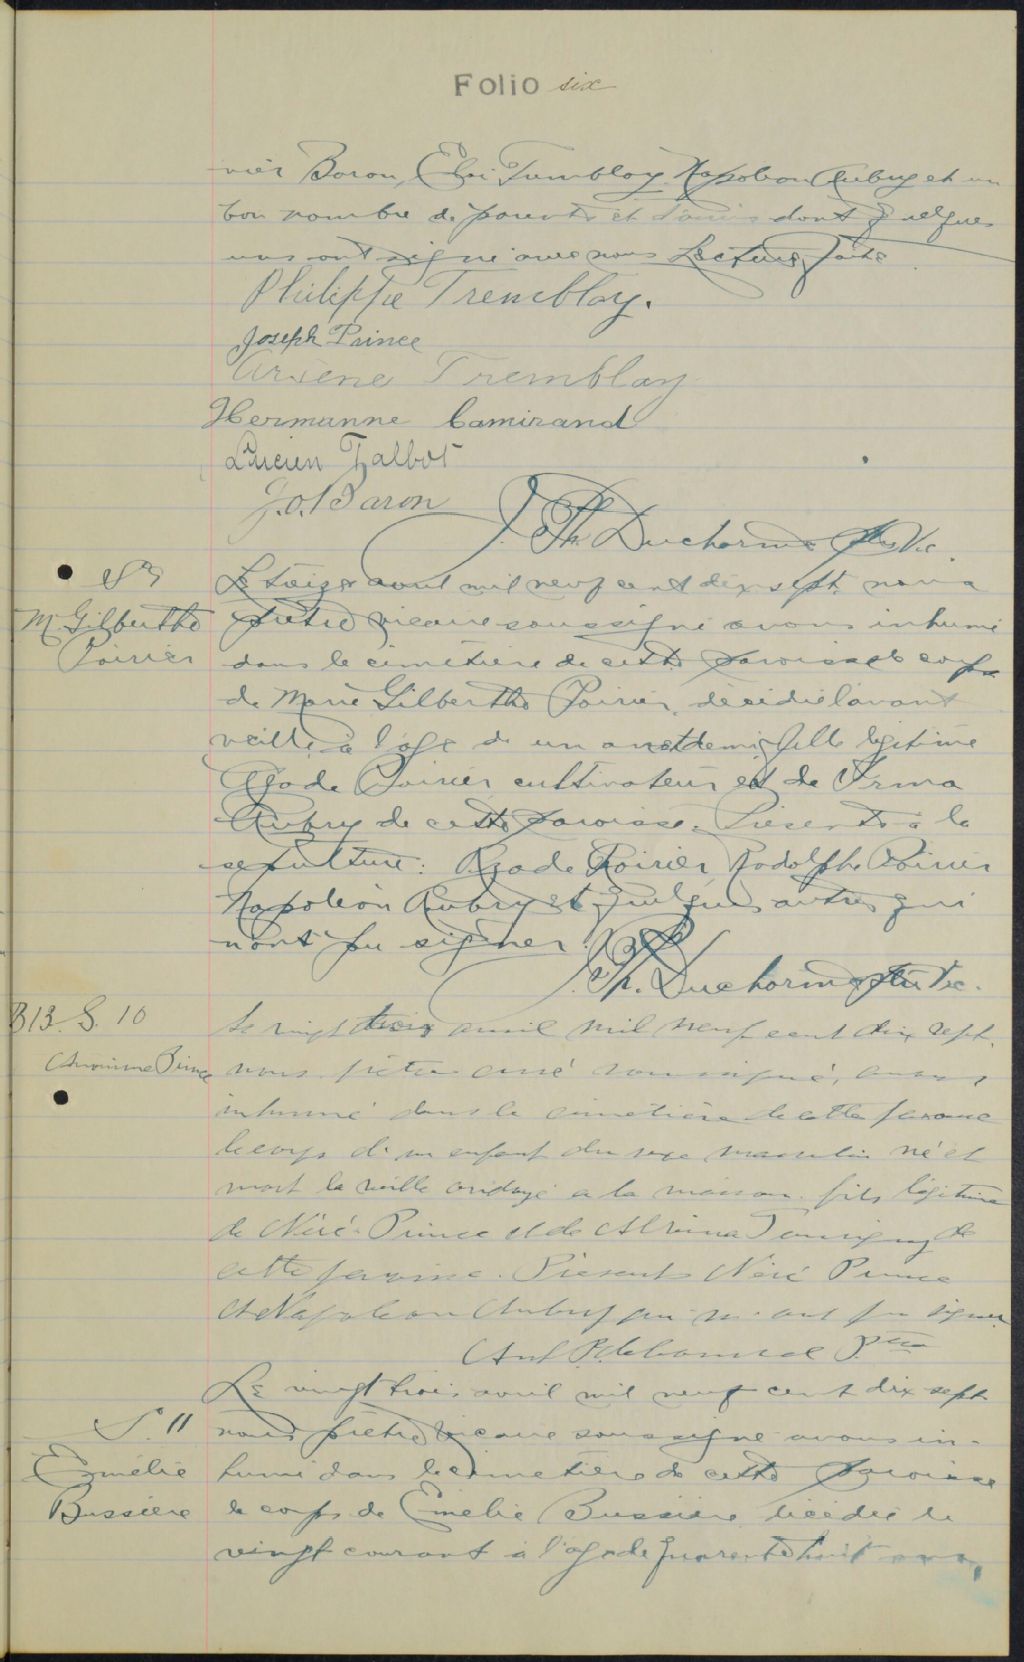 Folio six
vier Baron, Eloi Tremblay, Napoléon Aubry et un
bon nombre de parents et d'amis dont quelques
uns ont signé avec nous Lecture faite
Philippe Tremblay.
Joseph Prince
Arsène Tremblay
Hermanne Camirand
Lucien Talbot
J.O. Baron
J. Th. Ducharme Ptre Vic.
S 9
M. Gilberthe
Poirier
Le treize avril mil neuf cent dix sept nous
prêtre vicaire soussigné avons inhumé
dans le cimetière de cette paroisse le corps
de Marie Gilberthe Poirier, décédée l'avant
veille, à l'age de un an et demi, fille légitime
de Poirier cultivateur et de Irma
Aubry de cette paroisse. Présents à la
sépulture: Poirier, Rodolphe Poirier
Napoléon Aubry et quelques autres qui
n'ont pu signer.
J. Th. Ducharme Ptre Vic.
B 13. S. 10
Anonime Prince
Le vingt trois avril mil neuf cent dix sept,
nous prêtre curé soussigné, avons
inhumé dans le cimetière de cette paroisse
le corps d'un enfant du sexe masculin né et
mort la veille ondoyé a la maison fils légitime
de Néré Prince et de Alvina Tourigny de
cette paroisse. Présents Néré Prince
et Napoléon Aubry qui n'ont pu signer
Ptre
S. 11
Emélie
Bussière
Le vingt trois avril mil neuf cent dix sept
nous prêtre vicaire soussigné avons in-
humé dans le cimetière de cette paroisse
le corps de Emélie Bussière décédée le
vingt courant à l'age de quarante huit ans,